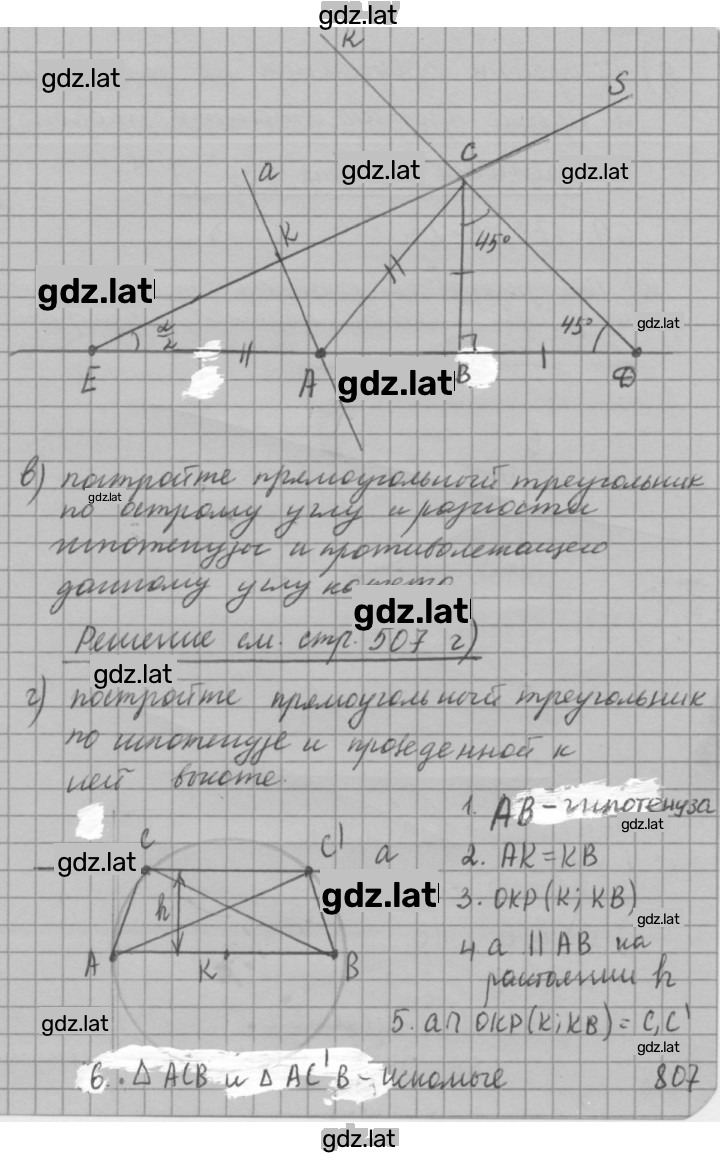 gdz.lat
к
gdz.lat
S
C
a
gdz.lat
gdz.lat
K
45°
gdz.lat
α/2
45°
gdz.lat
E
A
gdz.lat
B
D
в) постройте прямоугольный треугольник
gdz.lat
по острому углу и разности
гипотенузы и противолежащего
данному углу катета
gdz.lat
Решение см. стр. 507 г)
gdz.lat
г) постройте прямоугольный треугольник
по гипотенузе и проведенной к
ней высоте.
1. AB - гипотенуза
gdz.lat
C
C'
a
gdz.lat
2. AK = KB
h
gdz.lat
3. окр(K; KB)
gdz.lat
A
K
B
4 a || AB на
расстоянии h
gdz.lat
5. a∩ окр(K; KB) = C, C'
gdz.lat
6. Δ ACB и Δ AC'B - искомые
807
gdz.lat